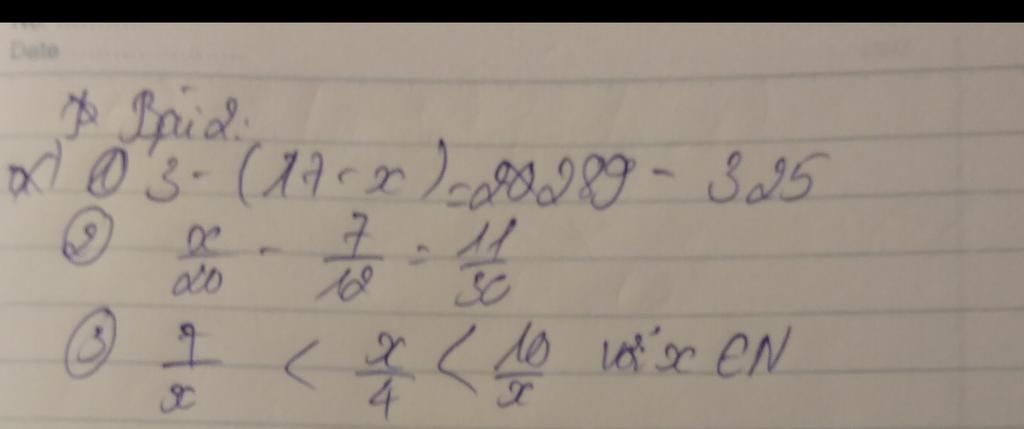 Date
* Bài 2:
① 3 - (17 - x) = 289 - 325
② x/20 - 7/12 = 11/30
③ 7/x < x/4 < 10/x với x ∈ N